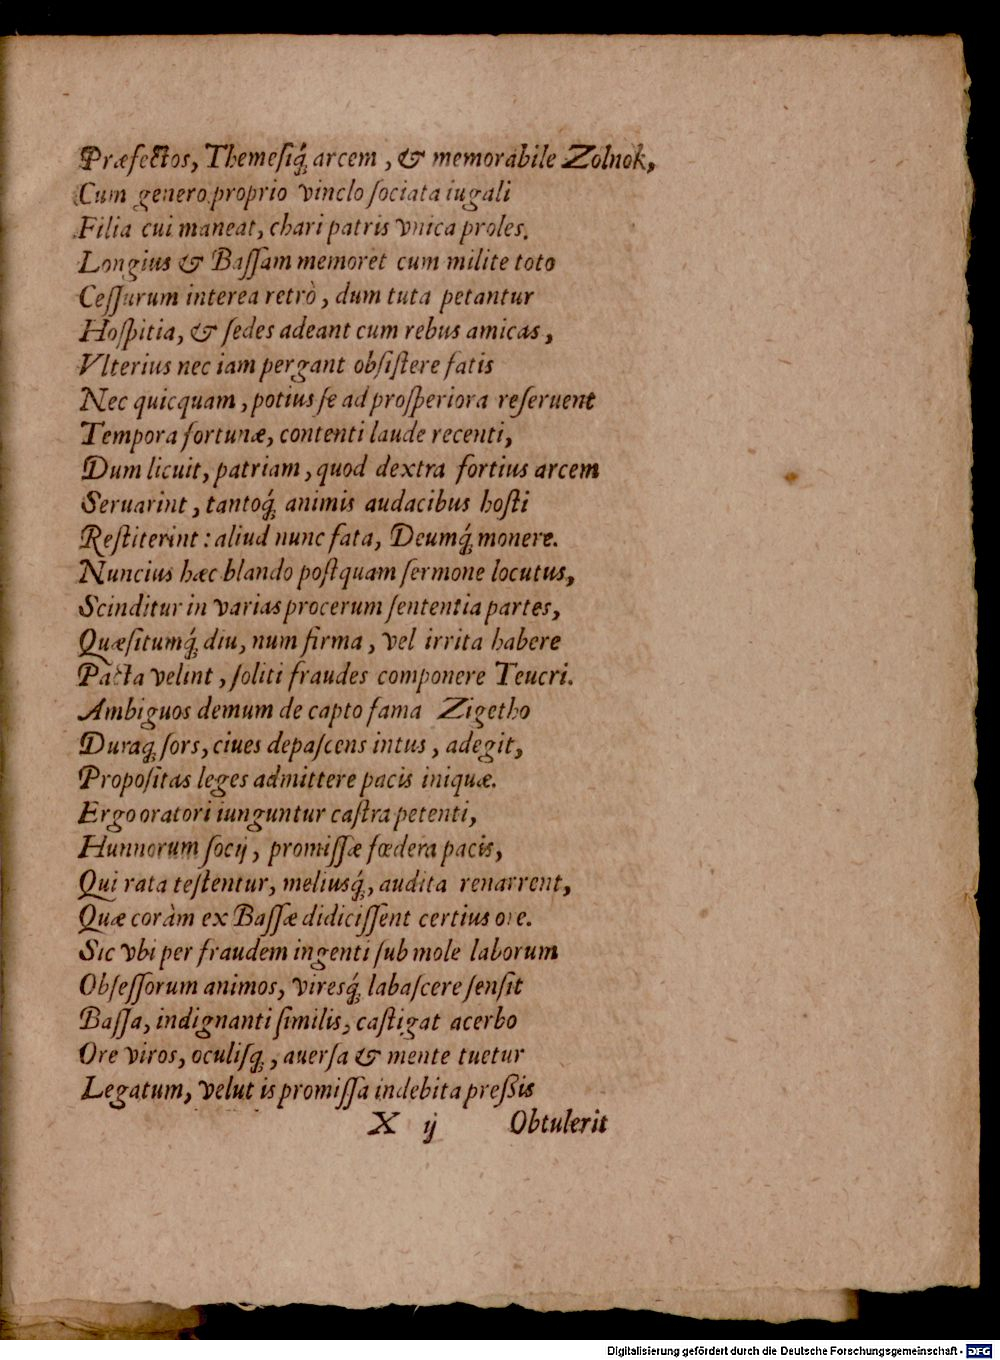 Præfectos, Themesiq́; arcem, & memorabile Zolnok,
Cum genero proprio vinclo sociata iugali
Filia cui maneat, chari patris vnica proles.
Longius & Bassam memoret cum milite toto
Cessurum interea retrò, dum tuta petantur
Hospitia, & sedes adeant cum rebus amicas,
Vlterius nec iam pergant obsistere fatis
Nec quicquam, potius se ad prosperiora reseruent
Tempora fortunæ, contenti laude recenti,
Dum licuit, patriam, quod dextra fortius arcem
Seruarint, tantoq́; animis audacibus hosti
Restiterint: aliud nunc fata, Deumq́; monere.
Nuncius hæc blando postquam sermone locutus,
Scinditur in varias procerum sententia partes,
Quæsitumq́; diu, num firma, vel irrita habere
Pacta velint, soliti fraudes componere Teucri.
Ambiguos demum de capto fama Zigetho
Duraq; sors, ciues depascens intus, adegit,
Propositas leges admittere pacis iniquæ.
Ergo oratori iunguntur castra petenti,
Hunnorum socij, promissæ fœdera pacis,
Qui rata testentur, meliusq́;, audita renarrent,
Quæ coràm ex Bassæ didicissent certius ore.
Sic vbi per fraudem ingenti sub mole laborum
Obsessorum animos, viresq́; labascere sensit
Bassa, indignanti similis, castigat acerbo
Ore viros, oculisq;, auersa & mente tuetur
Legatum, velut is promissa indebita pressis
X ij Obtulerit
Digitalisierung gefördert durch die Deutsche Forschungsgemeinschaft - DFG